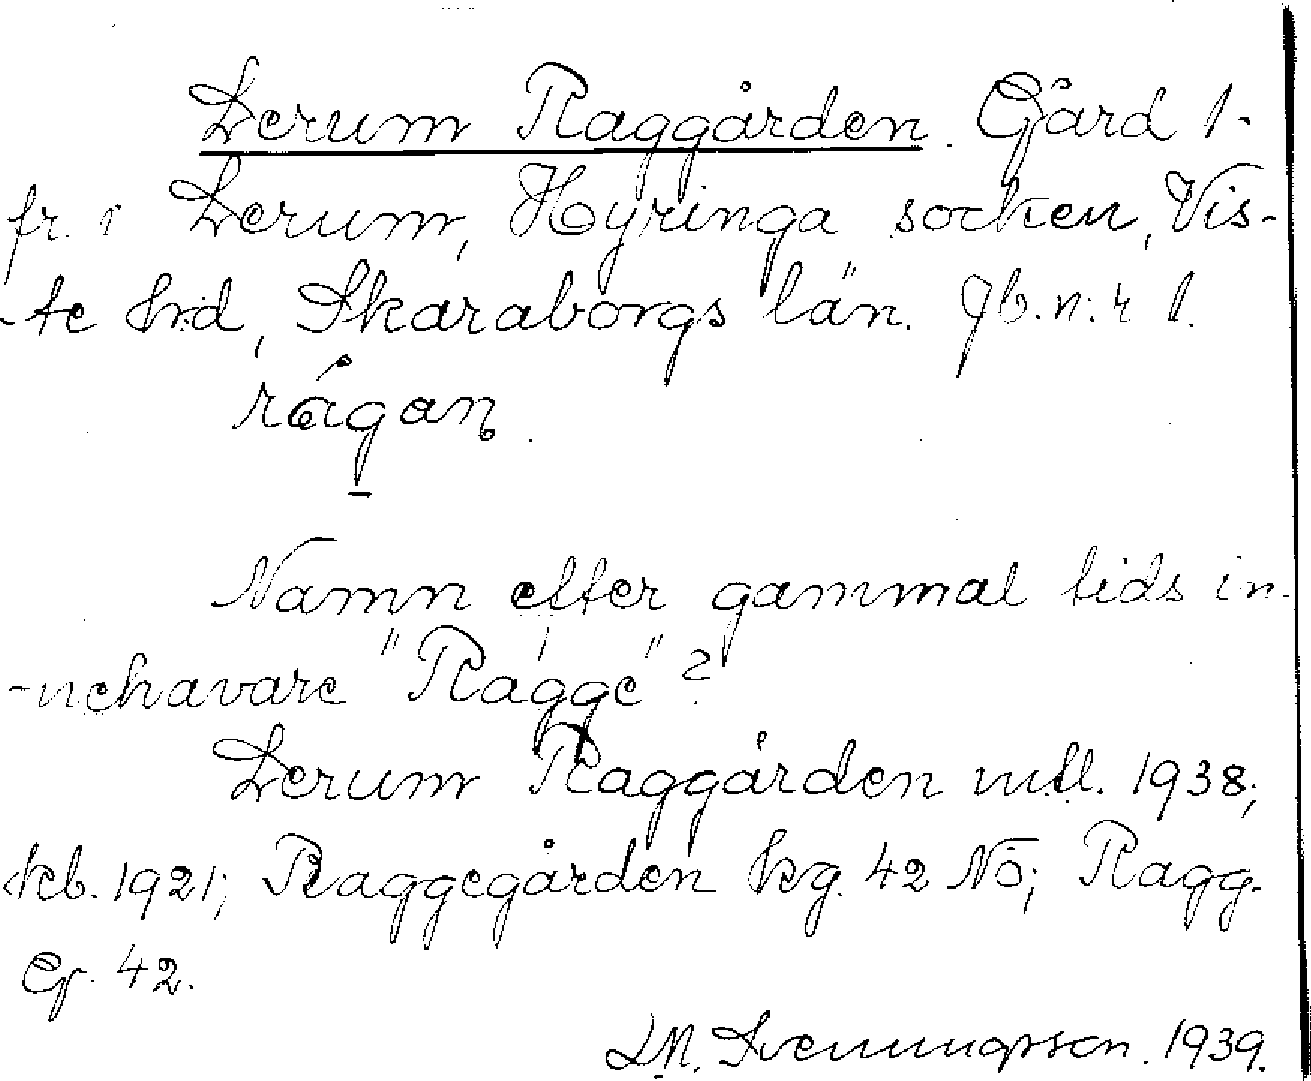 Lerum Raggården. Gård 1.
fr. i Lerum, Hyringa socken, Vis-
-te hrd, Skaraborgs län. Jb.n:r 1.
rágan.
Namn efter gammal tids in-
-nehavare "Ragge"?
Lerum Raggården mtl. 1938;
kb. 1921; Raggegården kg. 42 NÖ; Ragg.
Eg. 42.
Svenungsson. 1939.